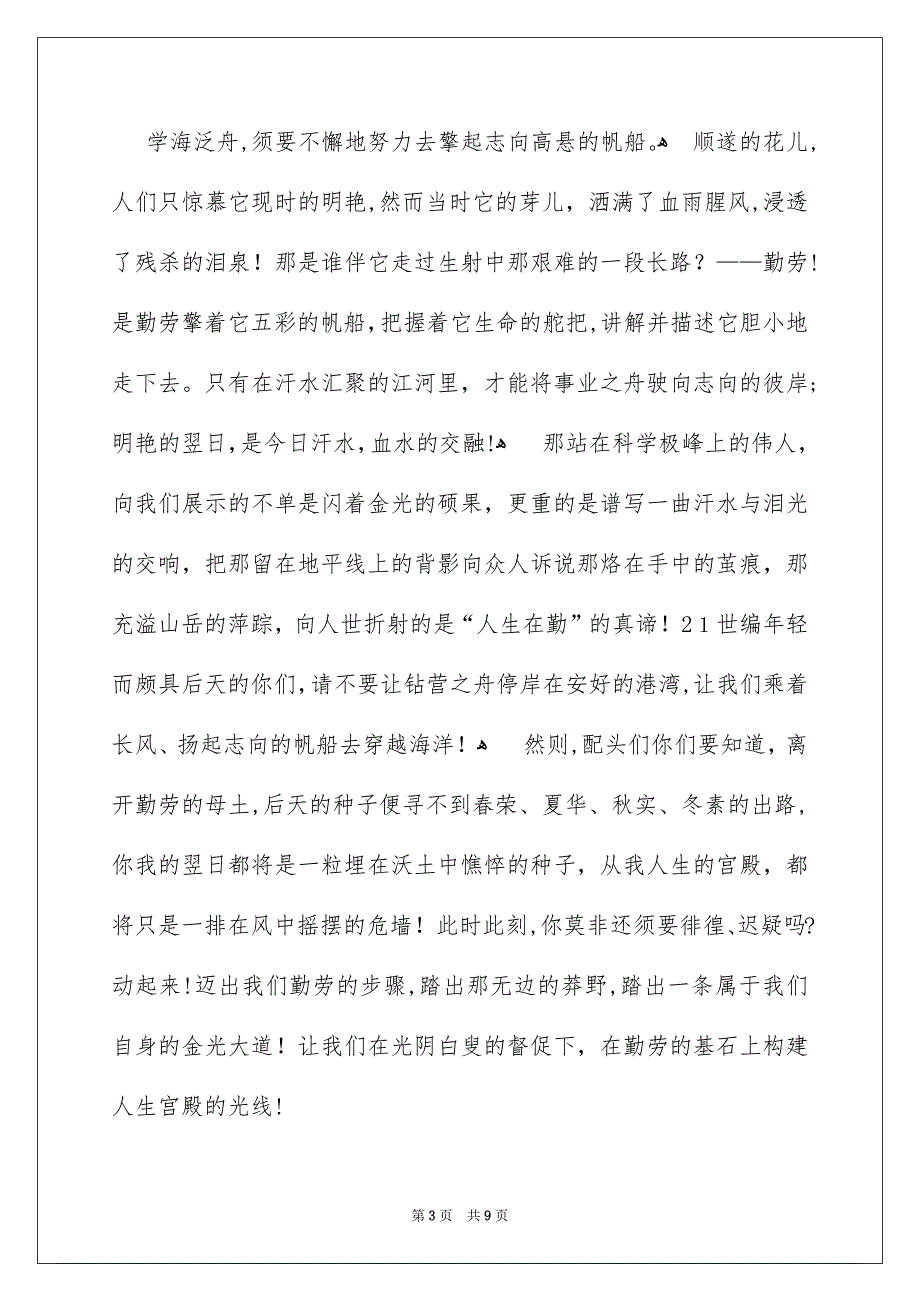 学海泛舟,须要不懈地努力去擎起志向高悬的帆船。ﻩ 顺遂的花儿,
人们只惊慕它现时的明艳,然而当时它的芽儿，洒满了血雨腥风,浸透
了残杀的泪泉！那是谁伴它走过生射中那艰难的一段长路？——勤劳!
是勤劳擎着它五彩的帆船，把握着它生命的舵把,讲解并描述它胆小地
走下去。只有在汗水汇聚的江河里，才能将事业之舟驶向志向的彼岸;
明艳的翌日，是今日汗水，血水的交融!ﻩ 那站在科学极峰上的伟人，
向我们展示的不单是闪着金光的硕果，更重的是谱写一曲汗水与泪光
的交响，把那留在地平线上的背影向众人诉说那烙在手中的茧痕，那
充溢山岳的萍踪，向人世折射的是“人生在勤”的真谛！21世编年轻
而颇具后天的你们，请不要让钻营之舟停岸在安好的港湾,让我们乘着
长风、扬起志向的帆船去穿越海洋！ﻩ 然则,配头们你们要知道，离
开勤劳的母土,后天的种子便寻不到春荣、夏华、秋实、冬素的出路,
你我的翌日都将是一粒埋在沃土中憔悴的种子，从我人生的宫殿，都
将只是一排在风中摇摆的危墙！此时此刻,你莫非还须要徘徊、迟疑吗?
动起来!迈出我们勤劳的步骤,踏出那无边的莽野,踏出一条属于我们
自身的金光大道！让我们在光阴白叟的督促下，在勤劳的基石上构建
人生宫殿的光线!
第 3 页 共 9 页